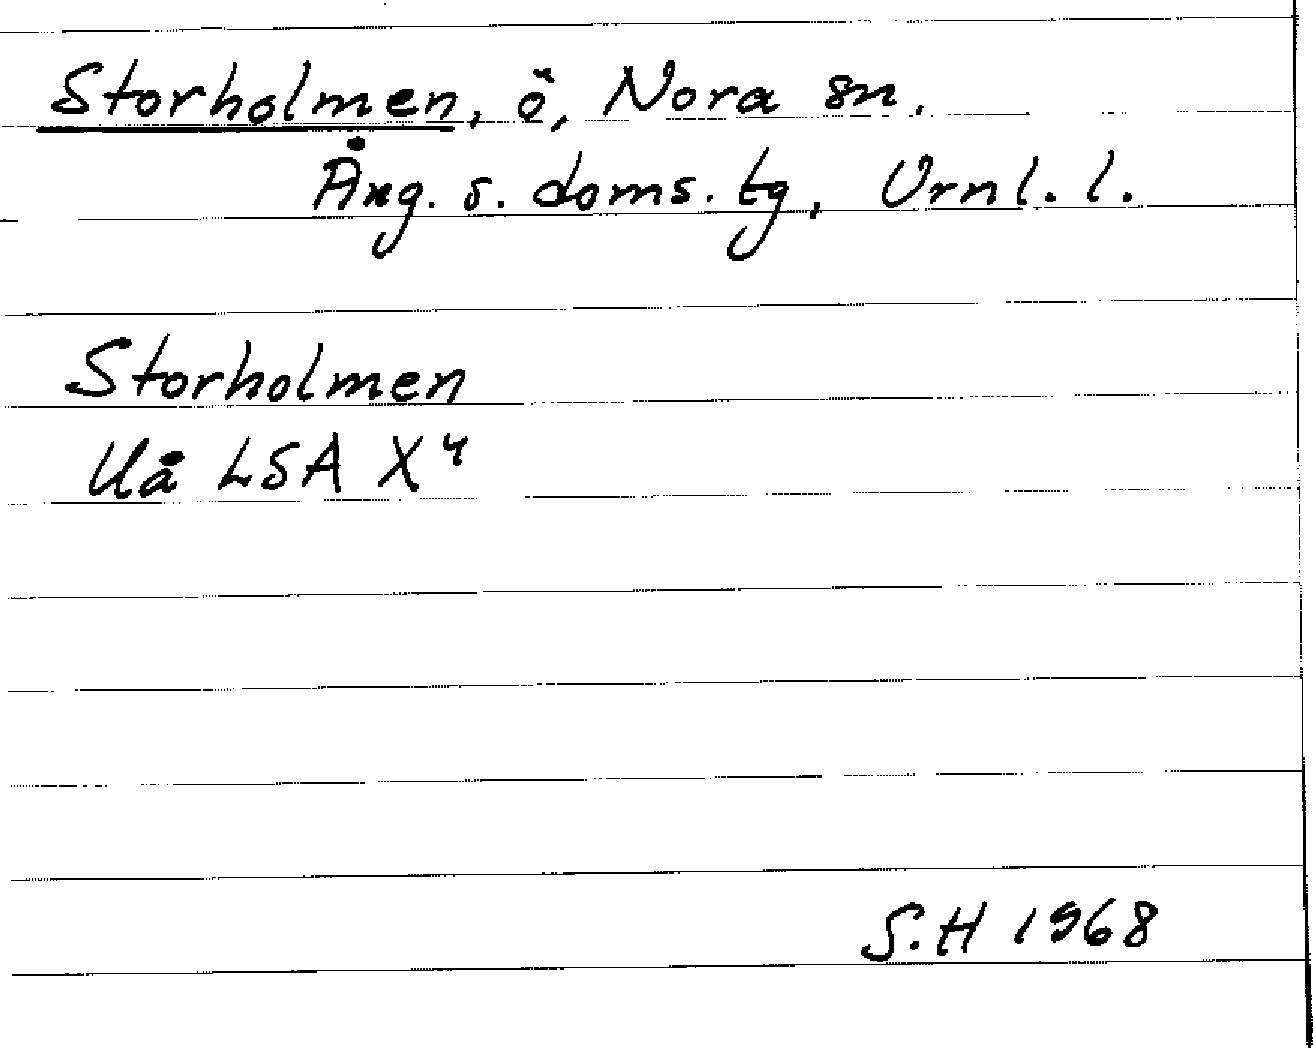 Storholmen, ö, Nora sn.
Ång. s. doms. tg, Vrnl. l.
Storholmen
Uå LSA X⁴
S.H 1968